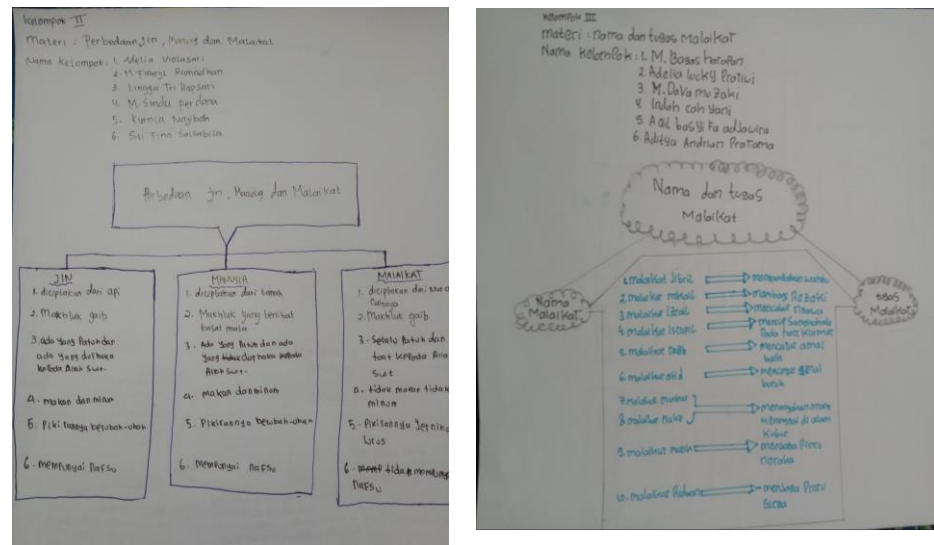 Kelompok II
Materi : Perbedaan Jin, Manusia dan Malaikat
Nama Kelompok : 1. Adelia Violasari
2. M. Ramadhan
3. Lingga Tri Hapsari
4. M. Sindu perdana
5. Kurnia Najibah
6. Siti Salsabila
Perbedaan jin, Manusia dan Malaikat
JIN
1. diciptakan dari api
2. Makhluk gaib
3. ada yang Patuh dan
ada yang durhaka
kepada Allah Swt.
4. makan dan minum
5. Pikirannya berubah-ubah
6. mempunyai nafsu
MANUSIA
1. diciptakan dari tanah
2. Makhluk yang terlihat
kasat mata
3. Ada Yang Patuh dan ada
yang durhaka kepada
Allah Swt.
4. makan dan minum
5. Pikirannya berubah-ubah
6. mempunyai nafsu
MALAIKAT
1. diciptakan dari
Cahaya
2. Makhluk gaib
3. Selalu Patuh dan
taat kepada
Swt
4. tidak makan tidak
minum
5. Pikirannya jernih
lurus
6. tidak
nafsu
Kelompok III
materi : nama dan tugas Malaikat
Nama Kelompok : 1. M. Bagas harapan
2. Adelia lucky Pratiwi
3. M. Dava muzaki
4. Indah cah yani
5. Aqil basyifa
6. Aditya Andrian Pratama
Nama dan tugas
Malaikat
Nama
Malaikat
tugas
Malaikat
1. malaikat jibril menyampaikan wahyu
2. malaikat mikail membagi Razaki
3. malaikat Izrail mencabut nyawa
4. malaikat Isropil meniup
Pada hari kiamat
5. malaikat mencatat amal
baik
6. malaikat atid mencatat amal
buruk
7. malaikat munkar
8. malaikat nakir menanyakan orang
di alam
kubur
9. malaikat malik menjaga Pintu
neraka
10. malaikat Ridwan menjaga Pintu
Surga